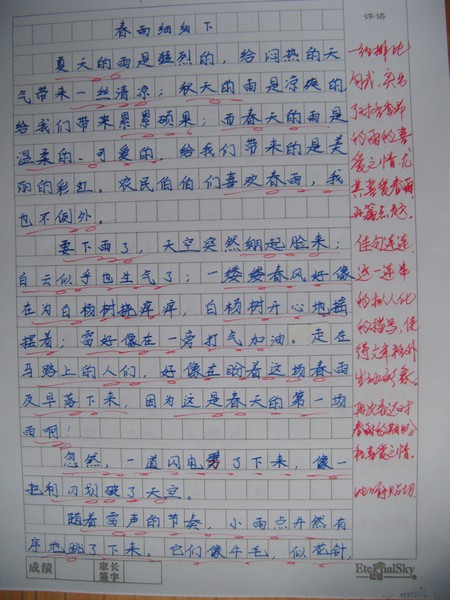 评语
春雨细细下
夏天的雨是猛烈的，给闷热的天
气带来一丝清凉；秋天的雨是凉爽的，
给我们带来累累硕果；而春天的雨是
温柔的、可爱的，给我们带来的是美
丽的彩虹。农民伯伯们喜欢春雨，我
也不例外。
要下雨了，天空突然绷起脸来；
白云似乎也生气了；一缕缕春风好像
在为白杨树挠痒痒，白杨树开心地摇
摆着；雷好像在一旁打气加油。走在
马路上的人们，好像在盼着这场春雨
及早落下来，因为这是春天的第一场
雨啊！
忽然，一道闪电劈了下来，像一
把利刃划破了天空。
随着雷声的节奏，小雨点井然有
序地跳了下来。它们像牛毛，似花针，
一组排比
句式，突出
了对各季节
的雨的喜
爱之情，尤
其喜爱春雨
佳句连连，
这一连串
的拟人化
的描写，使
得文章格外
生动形象。
再次表达对
春雨的期盼
和喜爱之情。
比喻贴切
成绩
家长
签字
EternalSky